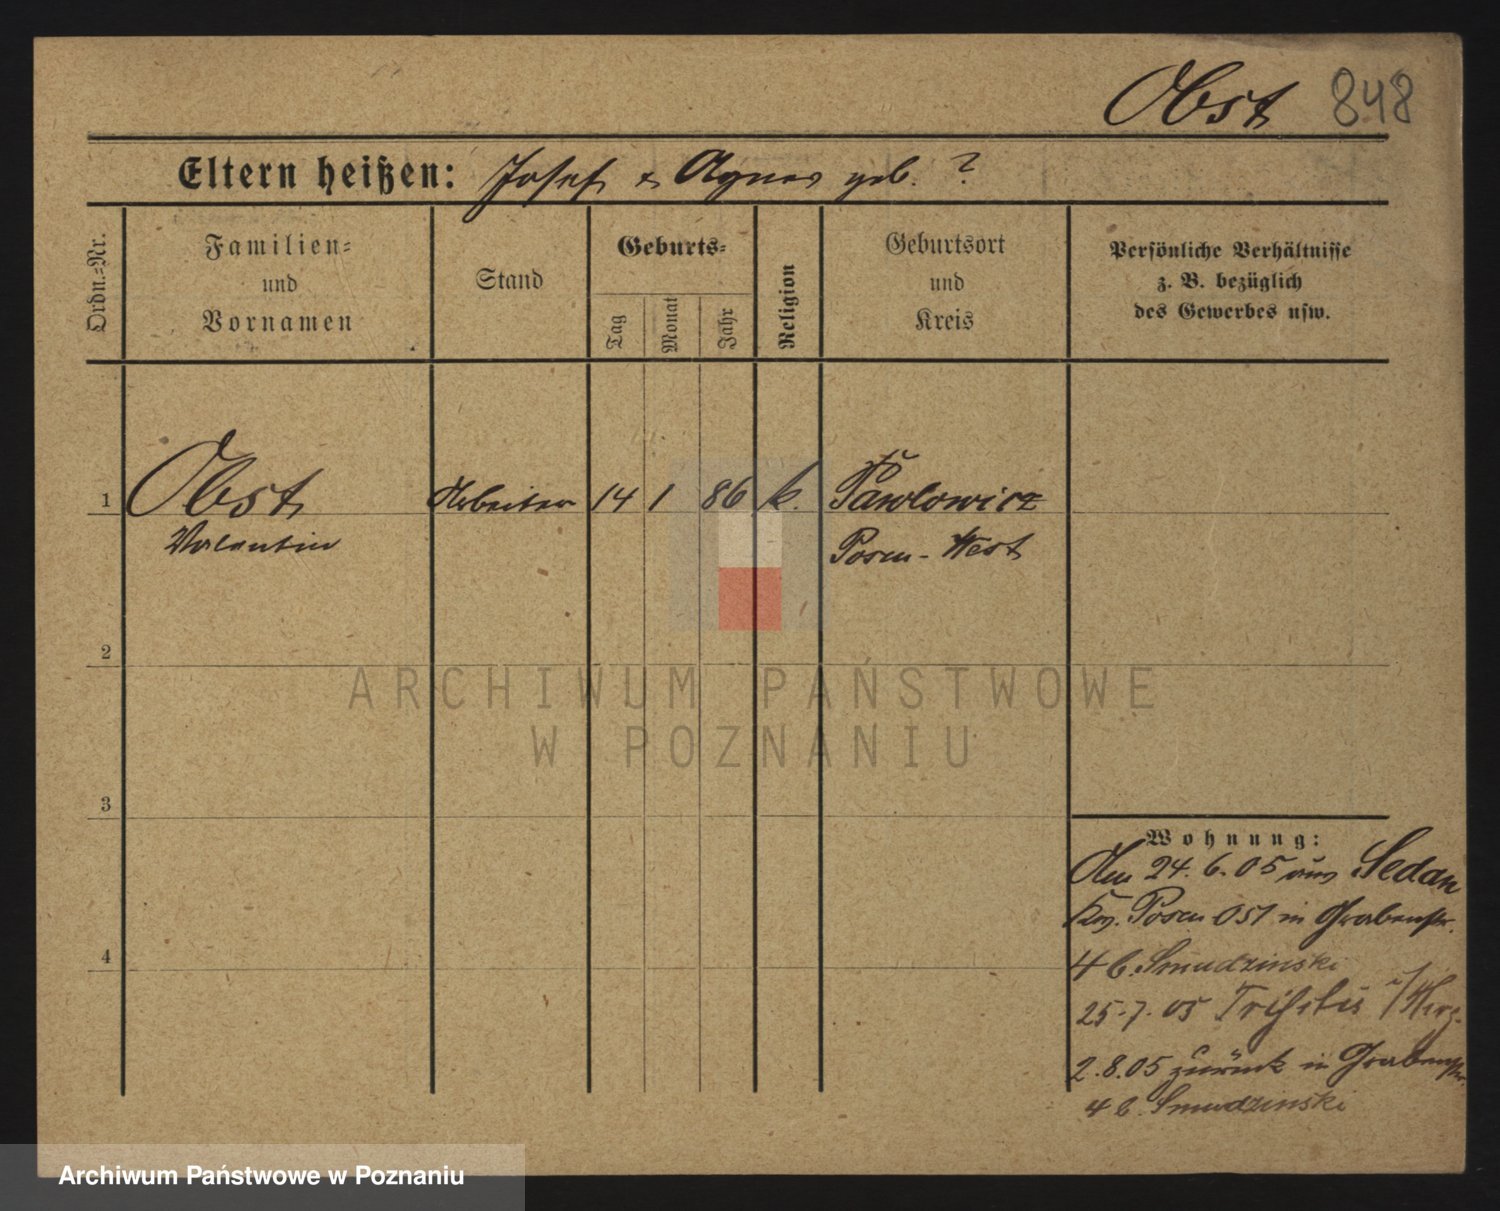 Obst 848
Eltern heißen: Josef & Agnes geb. ?
Ordn.=Nr.
Familien=
und
Vornamen
Stand
Geburts=
Tag
Monat
Jahr
Religion
Geburtsort
und
Kreis
Persönliche Verhältnisse
z. B. bezüglich
des Gewerbes usw.
1 Obst Arbeiter 14 1 86 k. Pawlowicz
Valentin Posen-West
2
ARCHIWUM PAŃSTWOWE
W POZNANIU
3
Wohnung:
Am 24. 6. 05 aus Sedan
Posen Ost in Grabenstr.
4
4 b. Smudzinski
25.7.05
2.8.05 zurück in Grabenstr.
4 b. Smudzinski
Archiwum Państwowe w Poznaniu